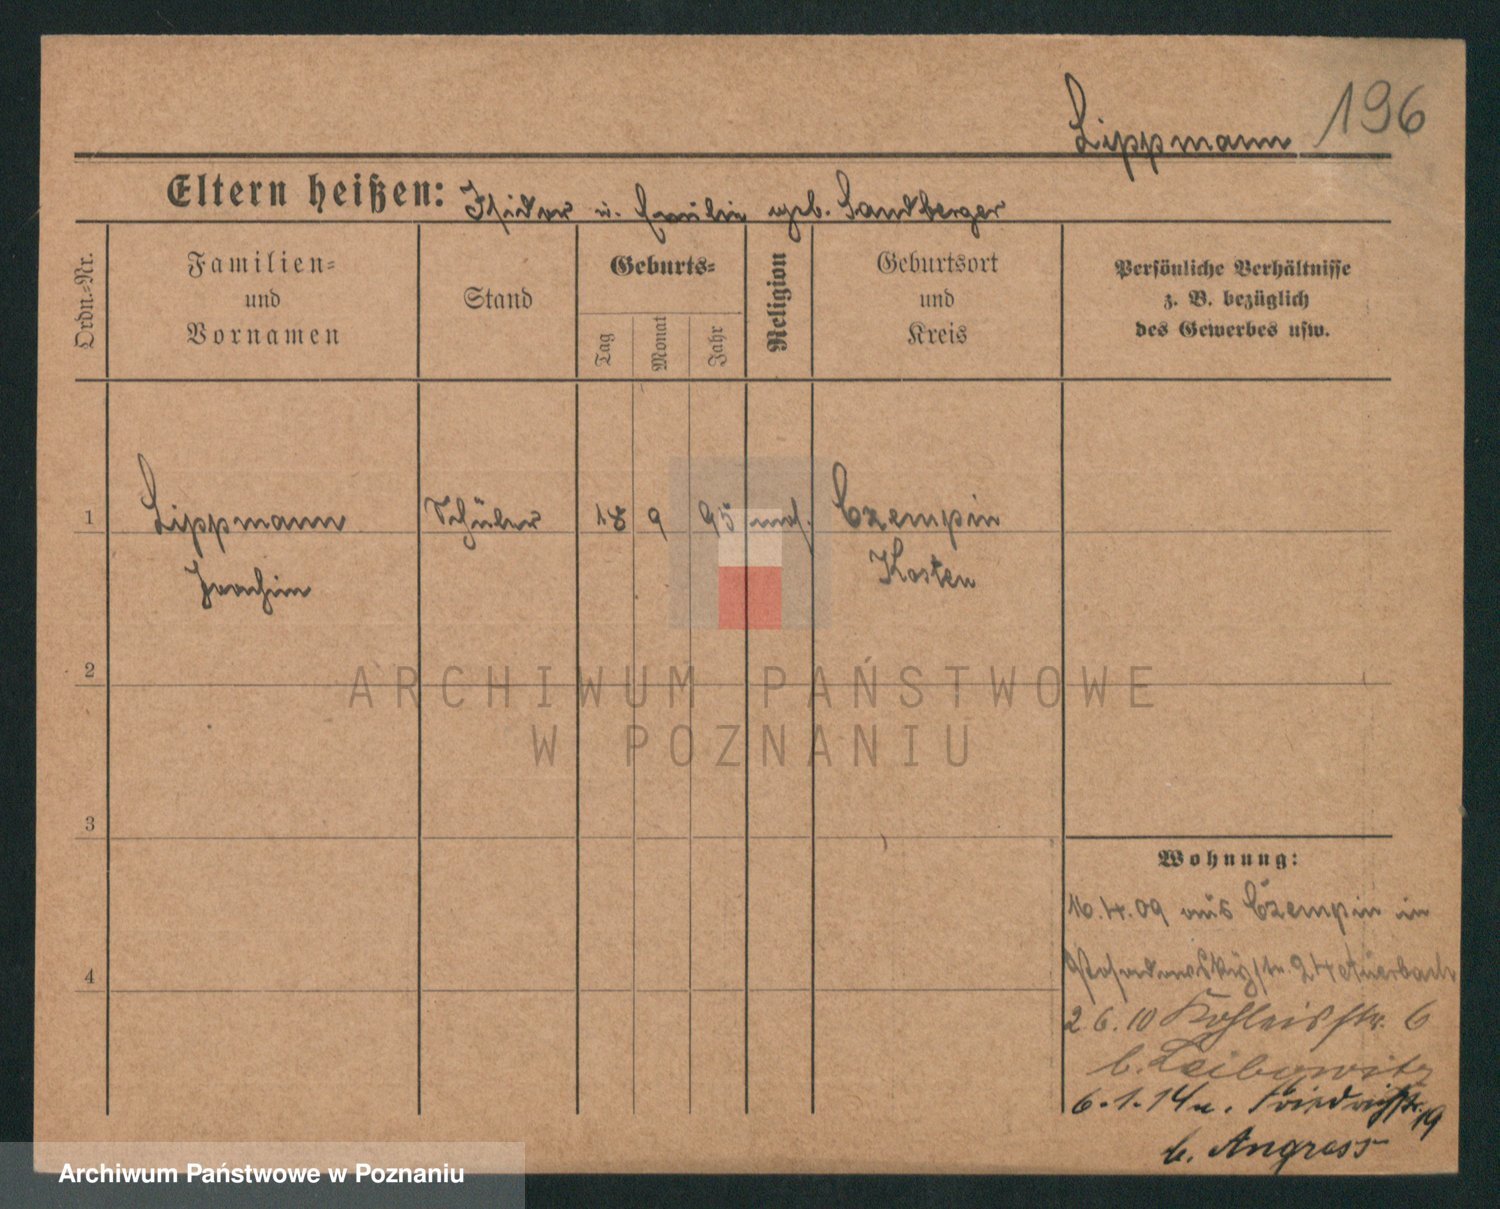 196
Lippmann
Eltern heißen: Isidor u. Emilie geb. Sandberger
Ordn.-Nr.
Familien-
und
Vornamen
Stand
Geburts-
Tag
Monat
Jahr
Religion
Geburtsort
und
Kreis
Persönliche Verhältnisse
z. B. bezüglich
des Gewerbes usw.
1 Lippmann Schüler 18 9 95 mos. Czempin
Joachim Kosten
2
3
4
Wohnung:
16.4.09 aus Czempin in
Posadowskystr. 24 Auerbach
2 6.10 Kohleisstr. 6
b. Leibowitz
6.1.14 n. Friedrichstr. 19
b. Angress
ARCHIWUM PAŃSTWOWE
W POZNANIU
Archiwum Państwowe w Poznaniu